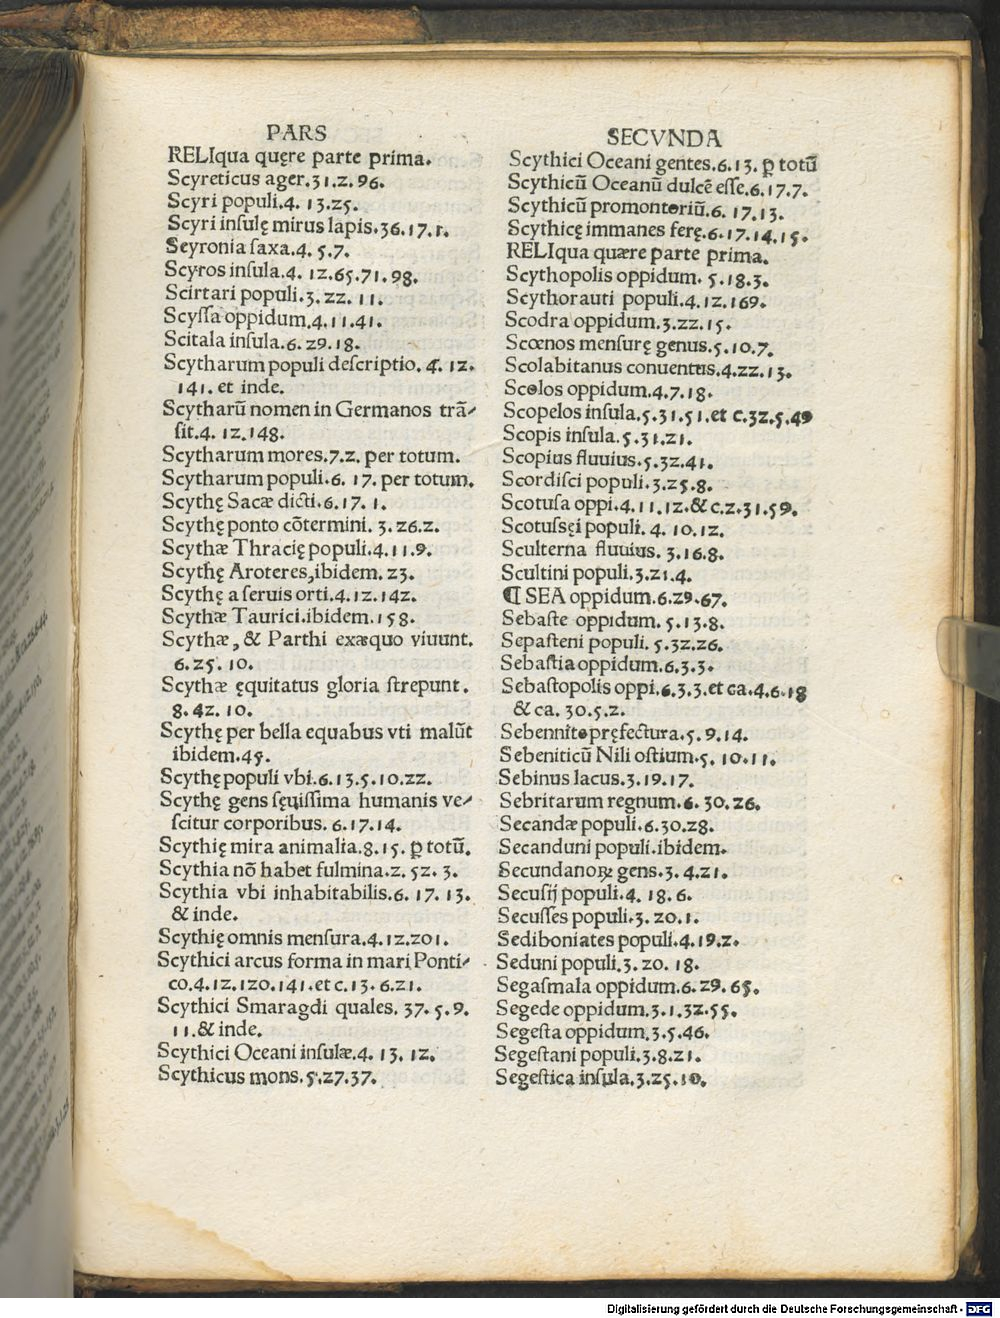 PARS
RELIqua quęre parte prima.
Scyreticus ager.31.2.96.
Scyri populi.4. 13.25.
Scyri inſulę mirus lapis.36.17.1.
Seyronia ſaxa.4. 5.7.
Scyros inſula.4. 12.65.71.98.
Scirtari populi.3.22. 11.
Scyſſa oppidum.4.11.41.
Scitala inſula.6.29.18.
Scytharum populi deſcriptio. 4. 12.
141. et inde.
Scytharū nomen in Germanos trā⸗
ſit.4. 12.148.
Scytharum mores.7.2. per totum.
Scytharum populi.6. 17. per totum.
Scythę Sacæ dicti.6.17. 1.
Scythę ponto cōtermini. 3.26.2.
Scythæ Thracię populi.4.11.9.
Scythę Aroteres,ibidem. 23.
Scythę a ſeruis orti.4.12.142.
Scythæ Taurici.ibidem.158.
Scythæ, & Parthi exæquo viuunt.
6.25. 10.
Scythæ ęquitatus gloria ſtrepunt.
8.42. 10.
Scythę per bella equabus vti malūt
ibidem.45.
Scythę populi vbi.6.13.5.10.22.
Scythę gens ſęuiſſima humanis ve⸗
ſcitur corporibus. 6.17.14.
Scythię mira animalia.8.15. ꝑ totū.
Scythia nō habet fulmina.2. 52. 3.
Scythia vbi inhabitabilis.6. 17. 13.
& inde.
Scythię omnis menſura.4.12.201.
Scythici arcus forma in mari Ponti⸗
co.4.12.120.141.et c.13.6.21.
Scythici Smaragdi quales. 37.5.9.
11.& inde.
Scythici Oceani inſulæ.4. 13. 12.
Scythicus mons.5.27.37.
SECVNDA
Scythici Oceani gentes.6.13. ꝑ totū
Scythicū Oceanū dulcē eſſe.6.17.7.
Scythicū promontoriū.6. 17.13.
Scythicę immanes ferę.6.17.14.15.
RELIqua quære parte prima.
Scythopolis oppidum. 5.18.3.
Scythorauti populi.4.12.169.
Scodra oppidum.3.22.15.
Scœnos menſurę genus.5.10.7.
Scolabitanus conuentus.4.22.13.
Scolos oppidum.4.7.18.
Scopelos inſula.5.31.51.et c.32.5.49
Scopis inſula.5.31.21.
Scopius fluuius.5.32.41.
Scordiſci populi.3.25.8.
Scotuſa oppi.4.11.12.& c.2.31.59.
Scotuſsęi populi.4. 10.12.
Sculterna fluuius. 3.16.8.
Scultini populi.3.21.4.
¶ SEA oppidum.6.29.67.
Sebaſte oppidum. 5.13.8.
Sepaſteni populi. 5.32.26.
Sebaſtia oppidum.6.3.3.
Sebaſtopolis oppi.6.3.3.et ca.4.6.18
& ca. 30.5.2.
Sebennitepręfectura.5.9.14.
Sebeniticū Nili oſtium.5. 10.11.
Sebinus lacus.3.19.17.
Sebritarum regnum.6. 30.26.
Secandæ populi.6.30.28.
Secanduni populi.ibidem.
Secundanoꝝ gens.3.4.21.
Secuſij populi.4. 18.6.
Secuſſes populi.3. 20.1.
Sediboniates populi.4.19.2.
Seduni populi.3. 20. 18.
Segaſmala oppidum.6.29.65.
Segede oppidum.3.1.32.55.
Segeſta oppidum.3.5.46.
Segeſtani populi.3.8.21.
Segeſtica inſula.3.25.10.
Digitalisierung gefördert durch die Deutsche Forschungsgemeinschaft - DFG